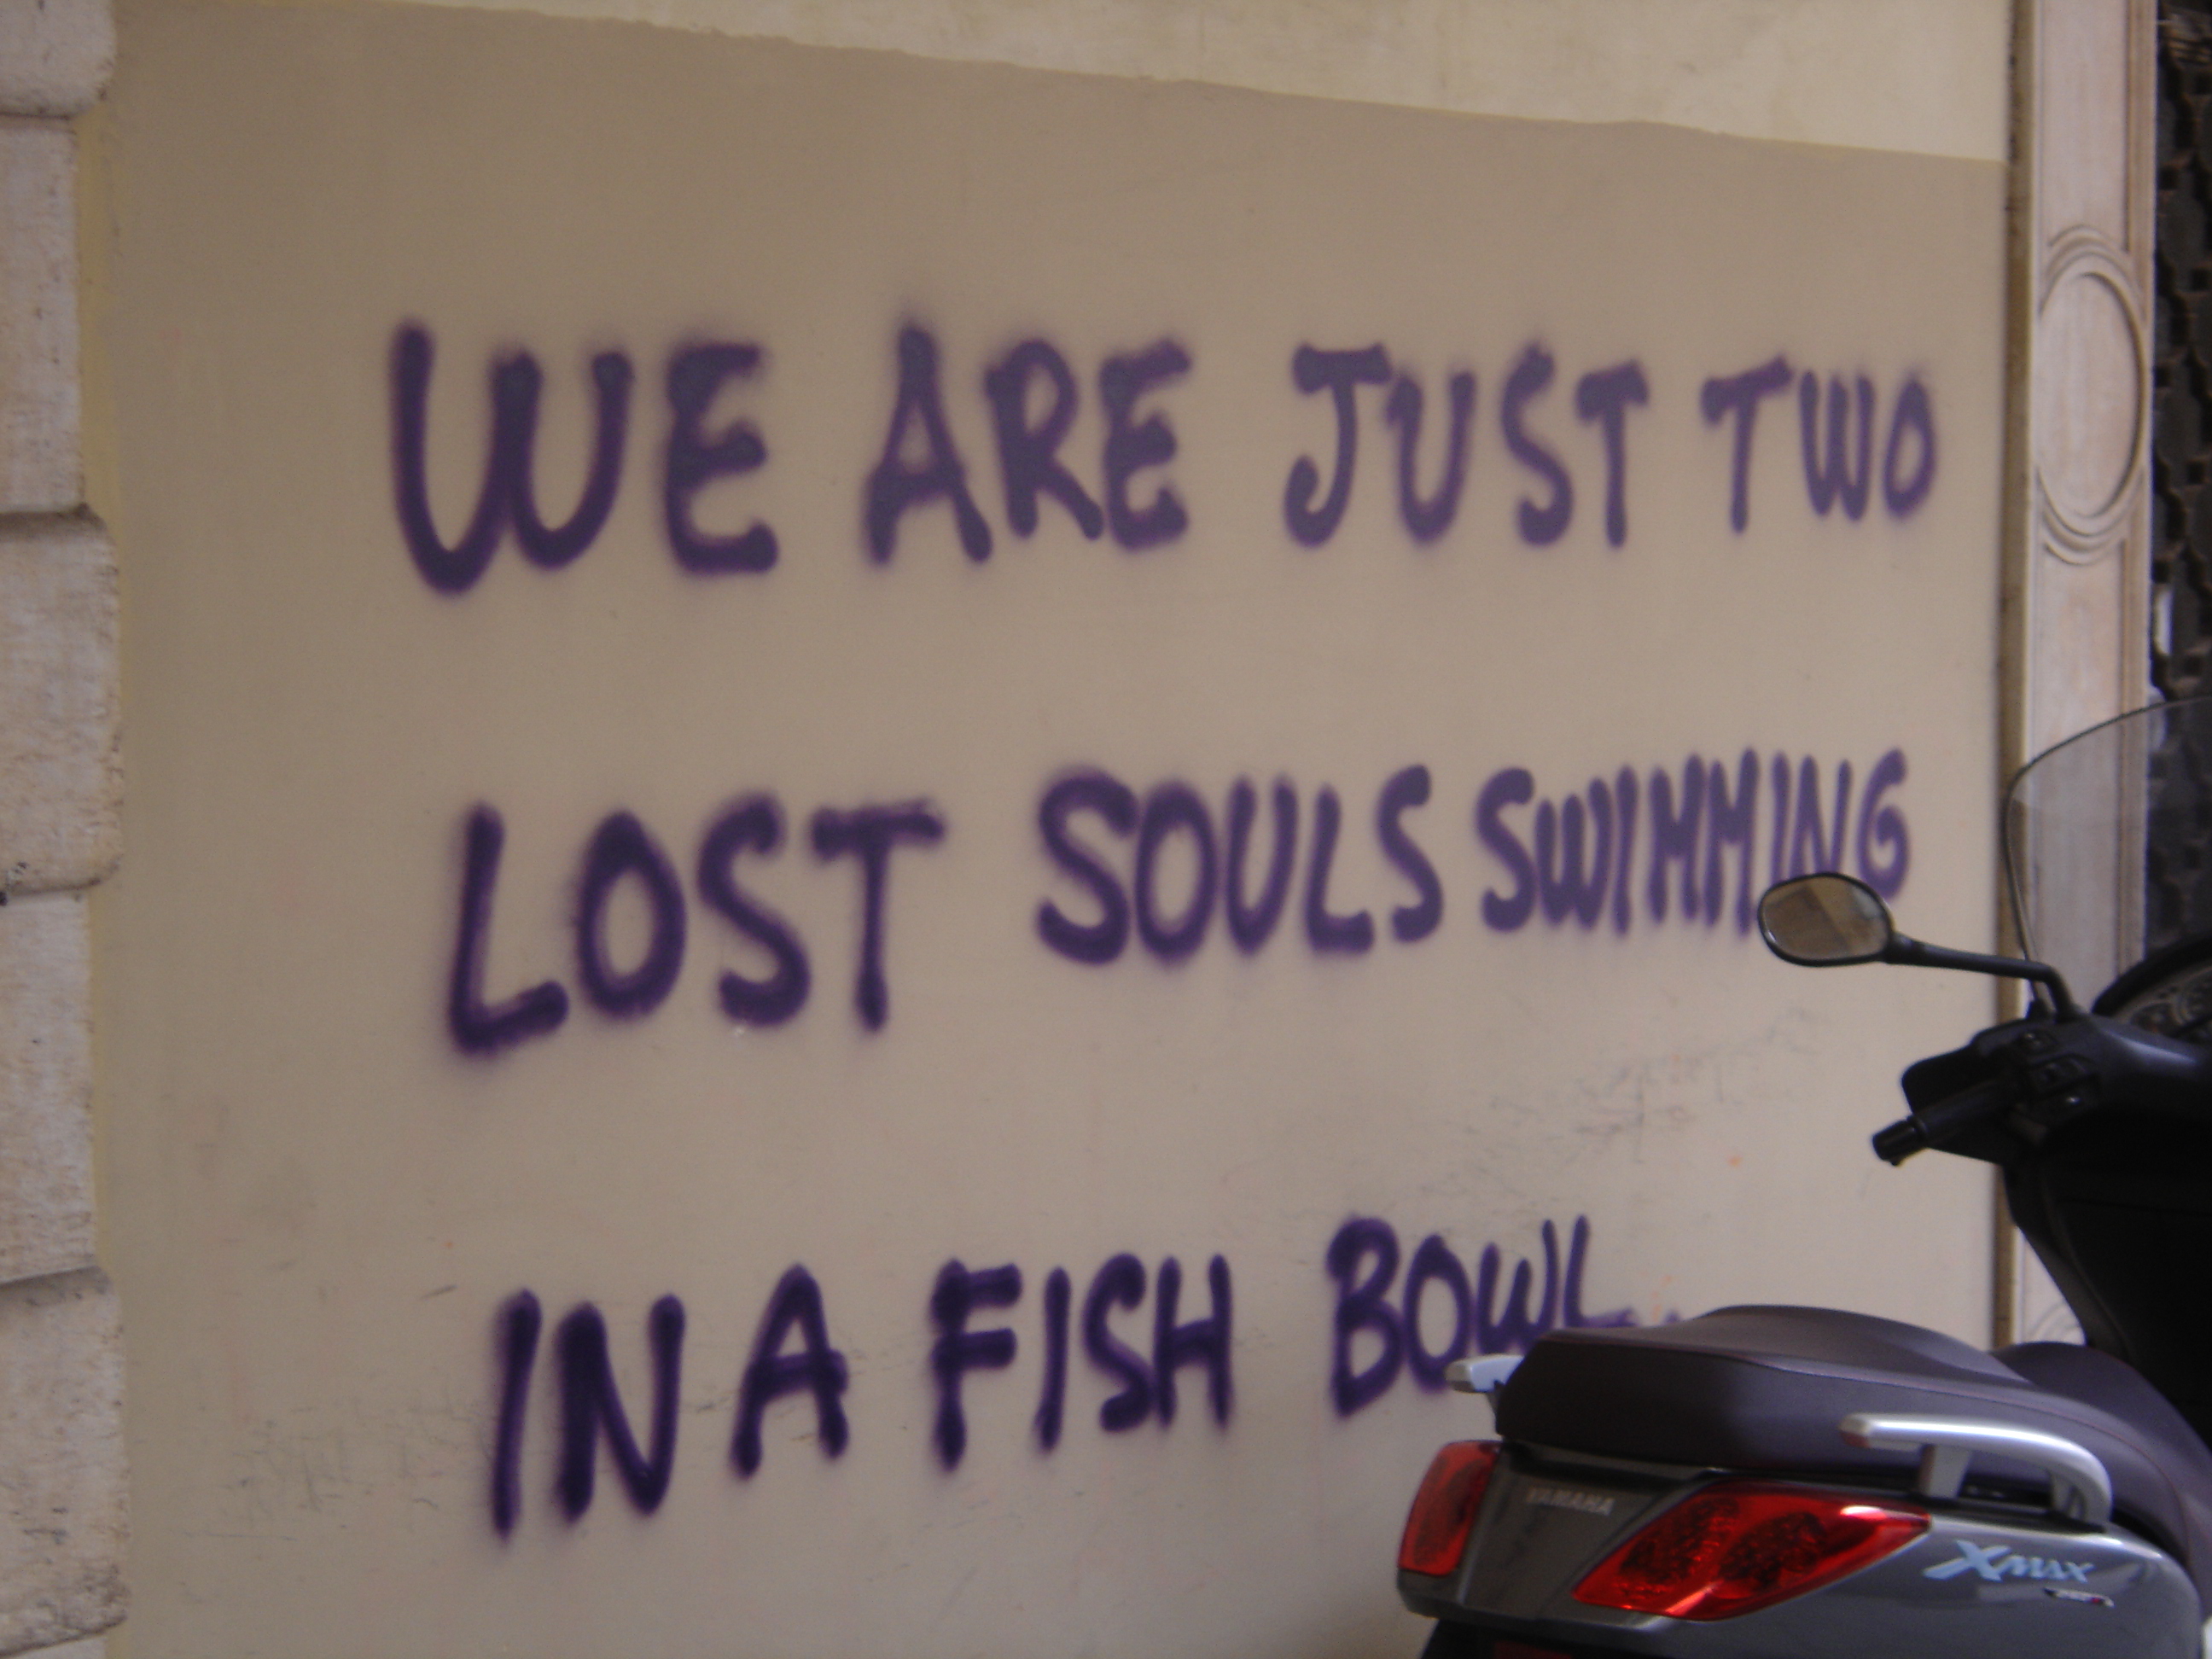 WE ARE JUST TWO
LOST SOULS SWIMMING
IN A FISH BOWL..
YAMAHA
XMAX